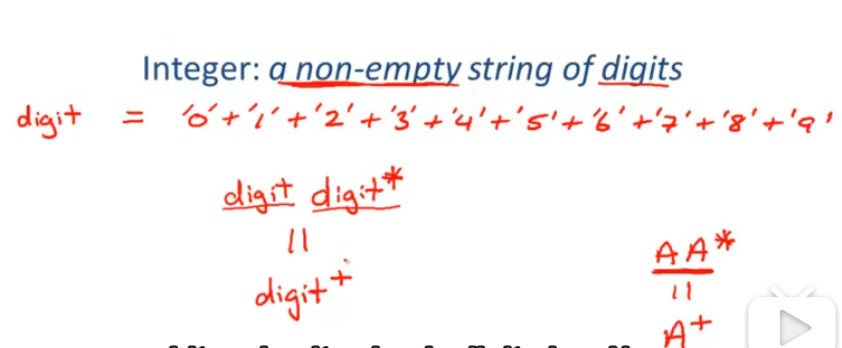 Integer: a non-empty string of digits
digit = '0' + '1' + '2' + '3' + '4' + '5' + '6' + '7' + '8' + '9'
digit digit*
||
digit+
AA*
||
A+